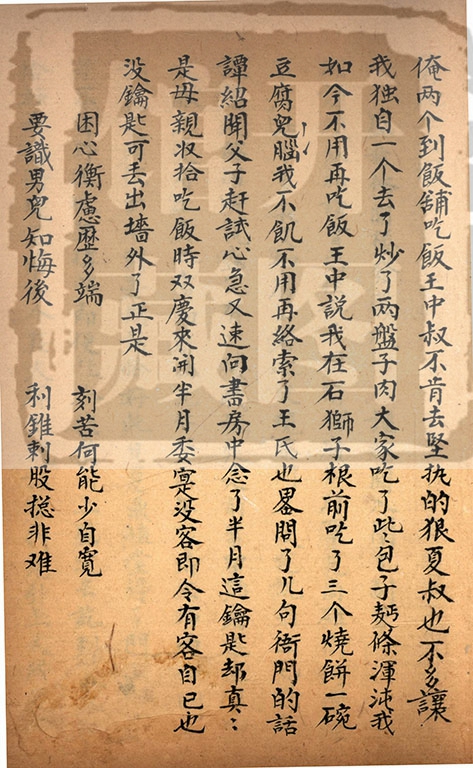 俺两个到飯舖吃飯王中叔不肯去坚执的狠夏叔也不多讓
我独自一个去了炒了两盤子肉大家吃了此包子麺條渾沌我
如今不用再吃飯王中説我在石獅子根前吃了三个燒餅一碗
豆腐兒腦我不飢不用再絡索了王氏也畧問了几句衙門的話
譚紹聞父子赶試心急又速向書房中念了半月這鑰匙却真〻
是母親収拾吃飯時双慶來開半月委寔没客即令有客自已也
没鑰匙可丢出墙外了正是
困心衡慮歴多端 刻苦何能少自寛
要識男兒知悔後 利錐刺股揔非难